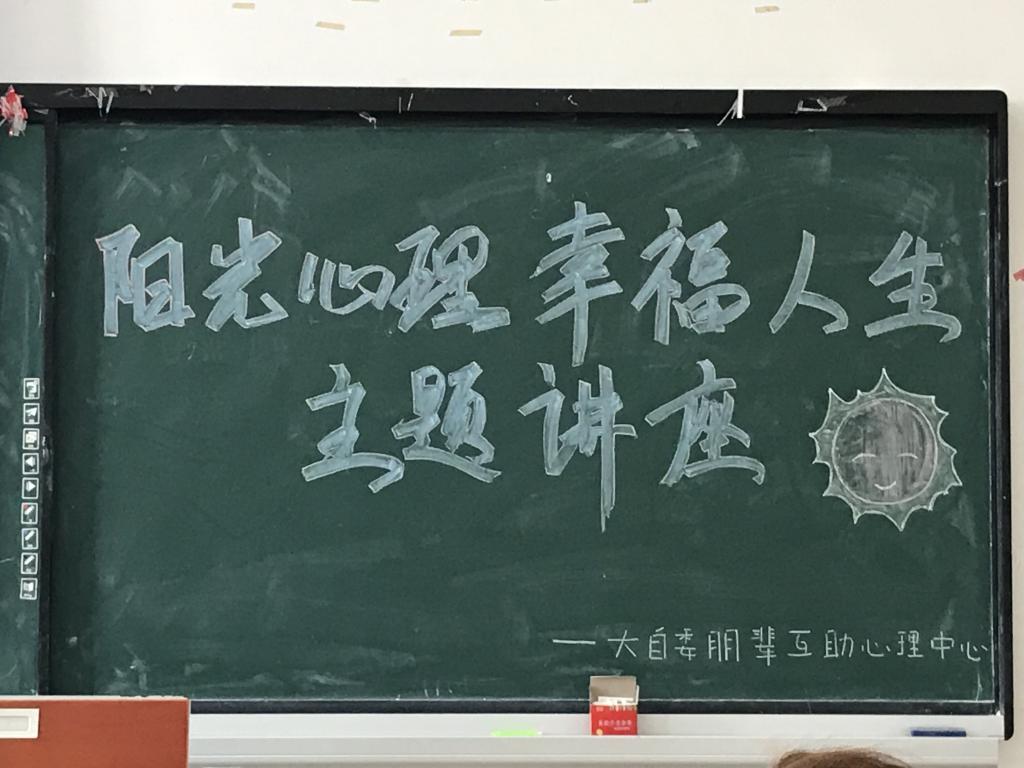 阳光心理 幸福人生
主题讲座
一大自委朋辈互助心理中心